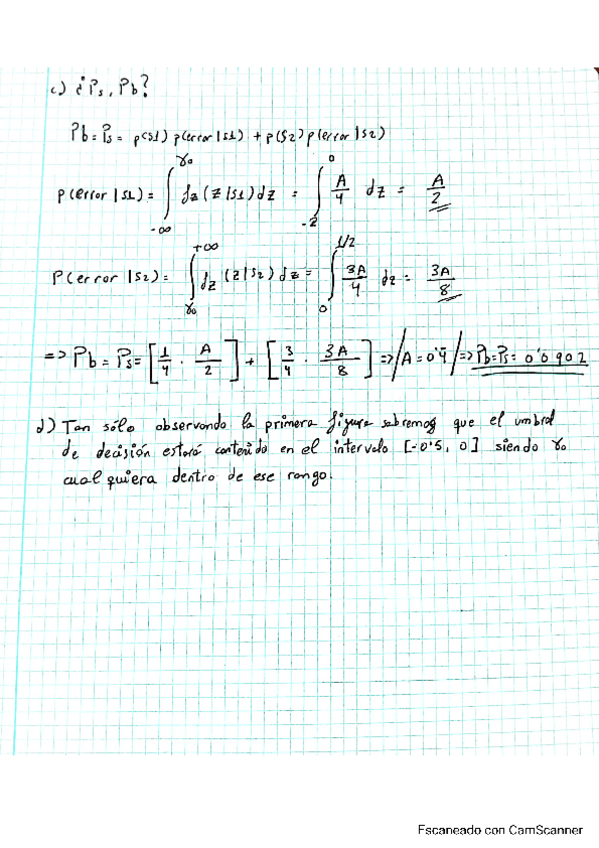 c) ¿Ps, Pb?
Pb = Ps = p(s1) p(error | s1) + p(s2) p(error | s2)
p(error | s1) = ∫_{-∞}^{γ0} fz(z|s1) dz = ∫_{-2}^{0} A/4 dz = A/2
P(error | s2) = ∫_{γ0}^{+∞} fz(z|s2) dz = ∫_{0}^{1/2} 3A/4 dz = 3A/8
=> Pb = Ps = [1/4 · A/2] + [3/4 · 3A/8] => /A = 0'4/ => Pb = Ps = 0'0902
d) Tan sólo observando la primera figura sabremos que el umbral
de decisión estará contenido en el intervalo [-0'5, 0] siendo γ0
cualquiera dentro de ese rango.
Escaneado con CamScanner